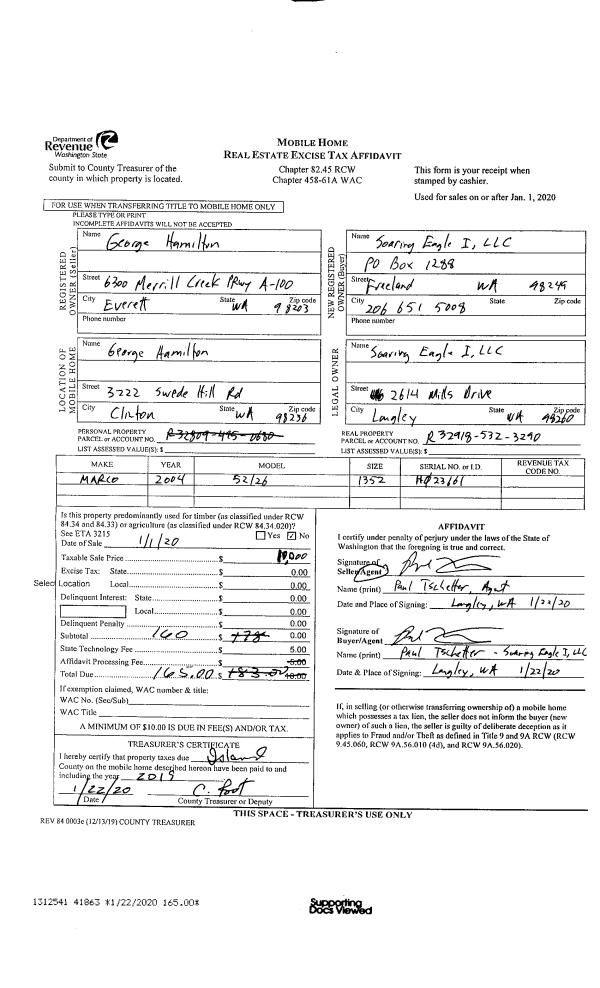 Department of
Revenue
Washington State
Submit to County Treasurer of the
county in which property is located.
MOBILE HOME
REAL ESTATE EXCISE TAX AFFIDAVIT
Chapter 82.45 RCW
Chapter 458-61A WAC
This form is your receipt when
stamped by cashier.
Used for sales on or after Jan. 1, 2020
FOR USE WHEN TRANSFERRING TITLE TO MOBILE HOME ONLY
PLEASE TYPE OR PRINT
INCOMPLETE AFFIDAVITS WILL NOT BE ACCEPTED
REGISTERED OWNER (Seller)
Name George Hamilton
Street 6300 Merrill Creek Pkwy A-100
City Everett State WA Zip code 98203
Phone number
NEW REGISTERED OWNER (Buyer)
Name Soaring Eagle I, LLC
PO Box 1288
Street Freeland WA 98249
City 206 651 5008 State Zip code
Phone number
LOCATION OF MOBILE HOME
Name George Hamilton
Street 3222 Swede Hill Rd
City Clinton State WA Zip code 98236
LEGAL OWNER
Name Soaring Eagle I, LLC
Street 2614 Mills Drive
City Langley State WA Zip code 98260
PERSONAL PROPERTY
PARCEL or ACCOUNT NO. R32809-495-0680
LIST ASSESSED VALUE(S): $
REAL PROPERTY
PARCEL or ACCOUNT NO. R32918-532-3290
LIST ASSESSED VALUE(S): $
MAKE YEAR MODEL SIZE SERIAL NO. or I.D. REVENUE TAX CODE NO.
MARCO 2004 52/26 1352 23161
Is this property predominantly used for timber (as classified under RCW
84.34 and 84.33) or agriculture (as classified under RCW 84.34.020)?
See ETA 3215 Yes ☑ No
Date of Sale 1/1/20
Taxable Sale Price $ 10,000
Excise Tax: State $ 0.00
Select Location Local $ 0.00
Delinquent Interest: State $ 0.00
Local $ 0.00
Delinquent Penalty $ 0.00
Subtotal 160 $ 178 0.00
State Technology Fee $ 5.00
Affidavit Processing Fee $ 5.00
Total Due 165.00 $ 183.00 10.00
If exemption claimed, WAC number & title:
WAC No. (Sec/Sub)
WAC Title
A MINIMUM OF $10.00 IS DUE IN FEE(S) AND/OR TAX.
TREASURER'S CERTIFICATE
I hereby certify that property taxes due Island
County on the mobile home described hereon have been paid to and
including the year 2019
1/22/20 C. Root
Date County Treasurer or Deputy
AFFIDAVIT
I certify under penalty of perjury under the laws of the State of
Washington that the foregoing is true and correct.
Signature of
Seller/Agent
Name (print) Paul Tschetter, Agent
Date and Place of Signing: Langley, WA 1/22/20
Signature of
Buyer/Agent
Name (print) Paul Tschetter - Soaring Eagle I, LLC
Date & Place of Signing: Langley, WA 1/22/20
If, in selling (or otherwise transferring ownership of) a mobile home
which possesses a tax lien, the seller does not inform the buyer (new
owner) of such a lien, the seller is guilty of deliberate deception as it
applies to Fraud and/or Theft as defined in Title 9 and 9A RCW (RCW
9.45.060, RCW 9A.56.010 (4d), and RCW 9A.56.020).
THIS SPACE - TREASURER'S USE ONLY
REV 84 0003e (12/13/19) COUNTY TREASURER
1312541 41863 *1/22/2020 165.00*
Supporting
Docs Viewed